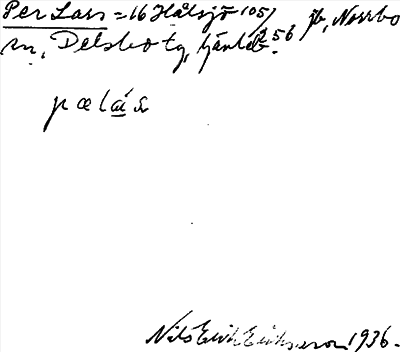 Per Lars = 16 Hålsjö 105/256 jb, Norrbo
sn, Delsbo tg,
pælás
Nils Erik Eriksson 1936.